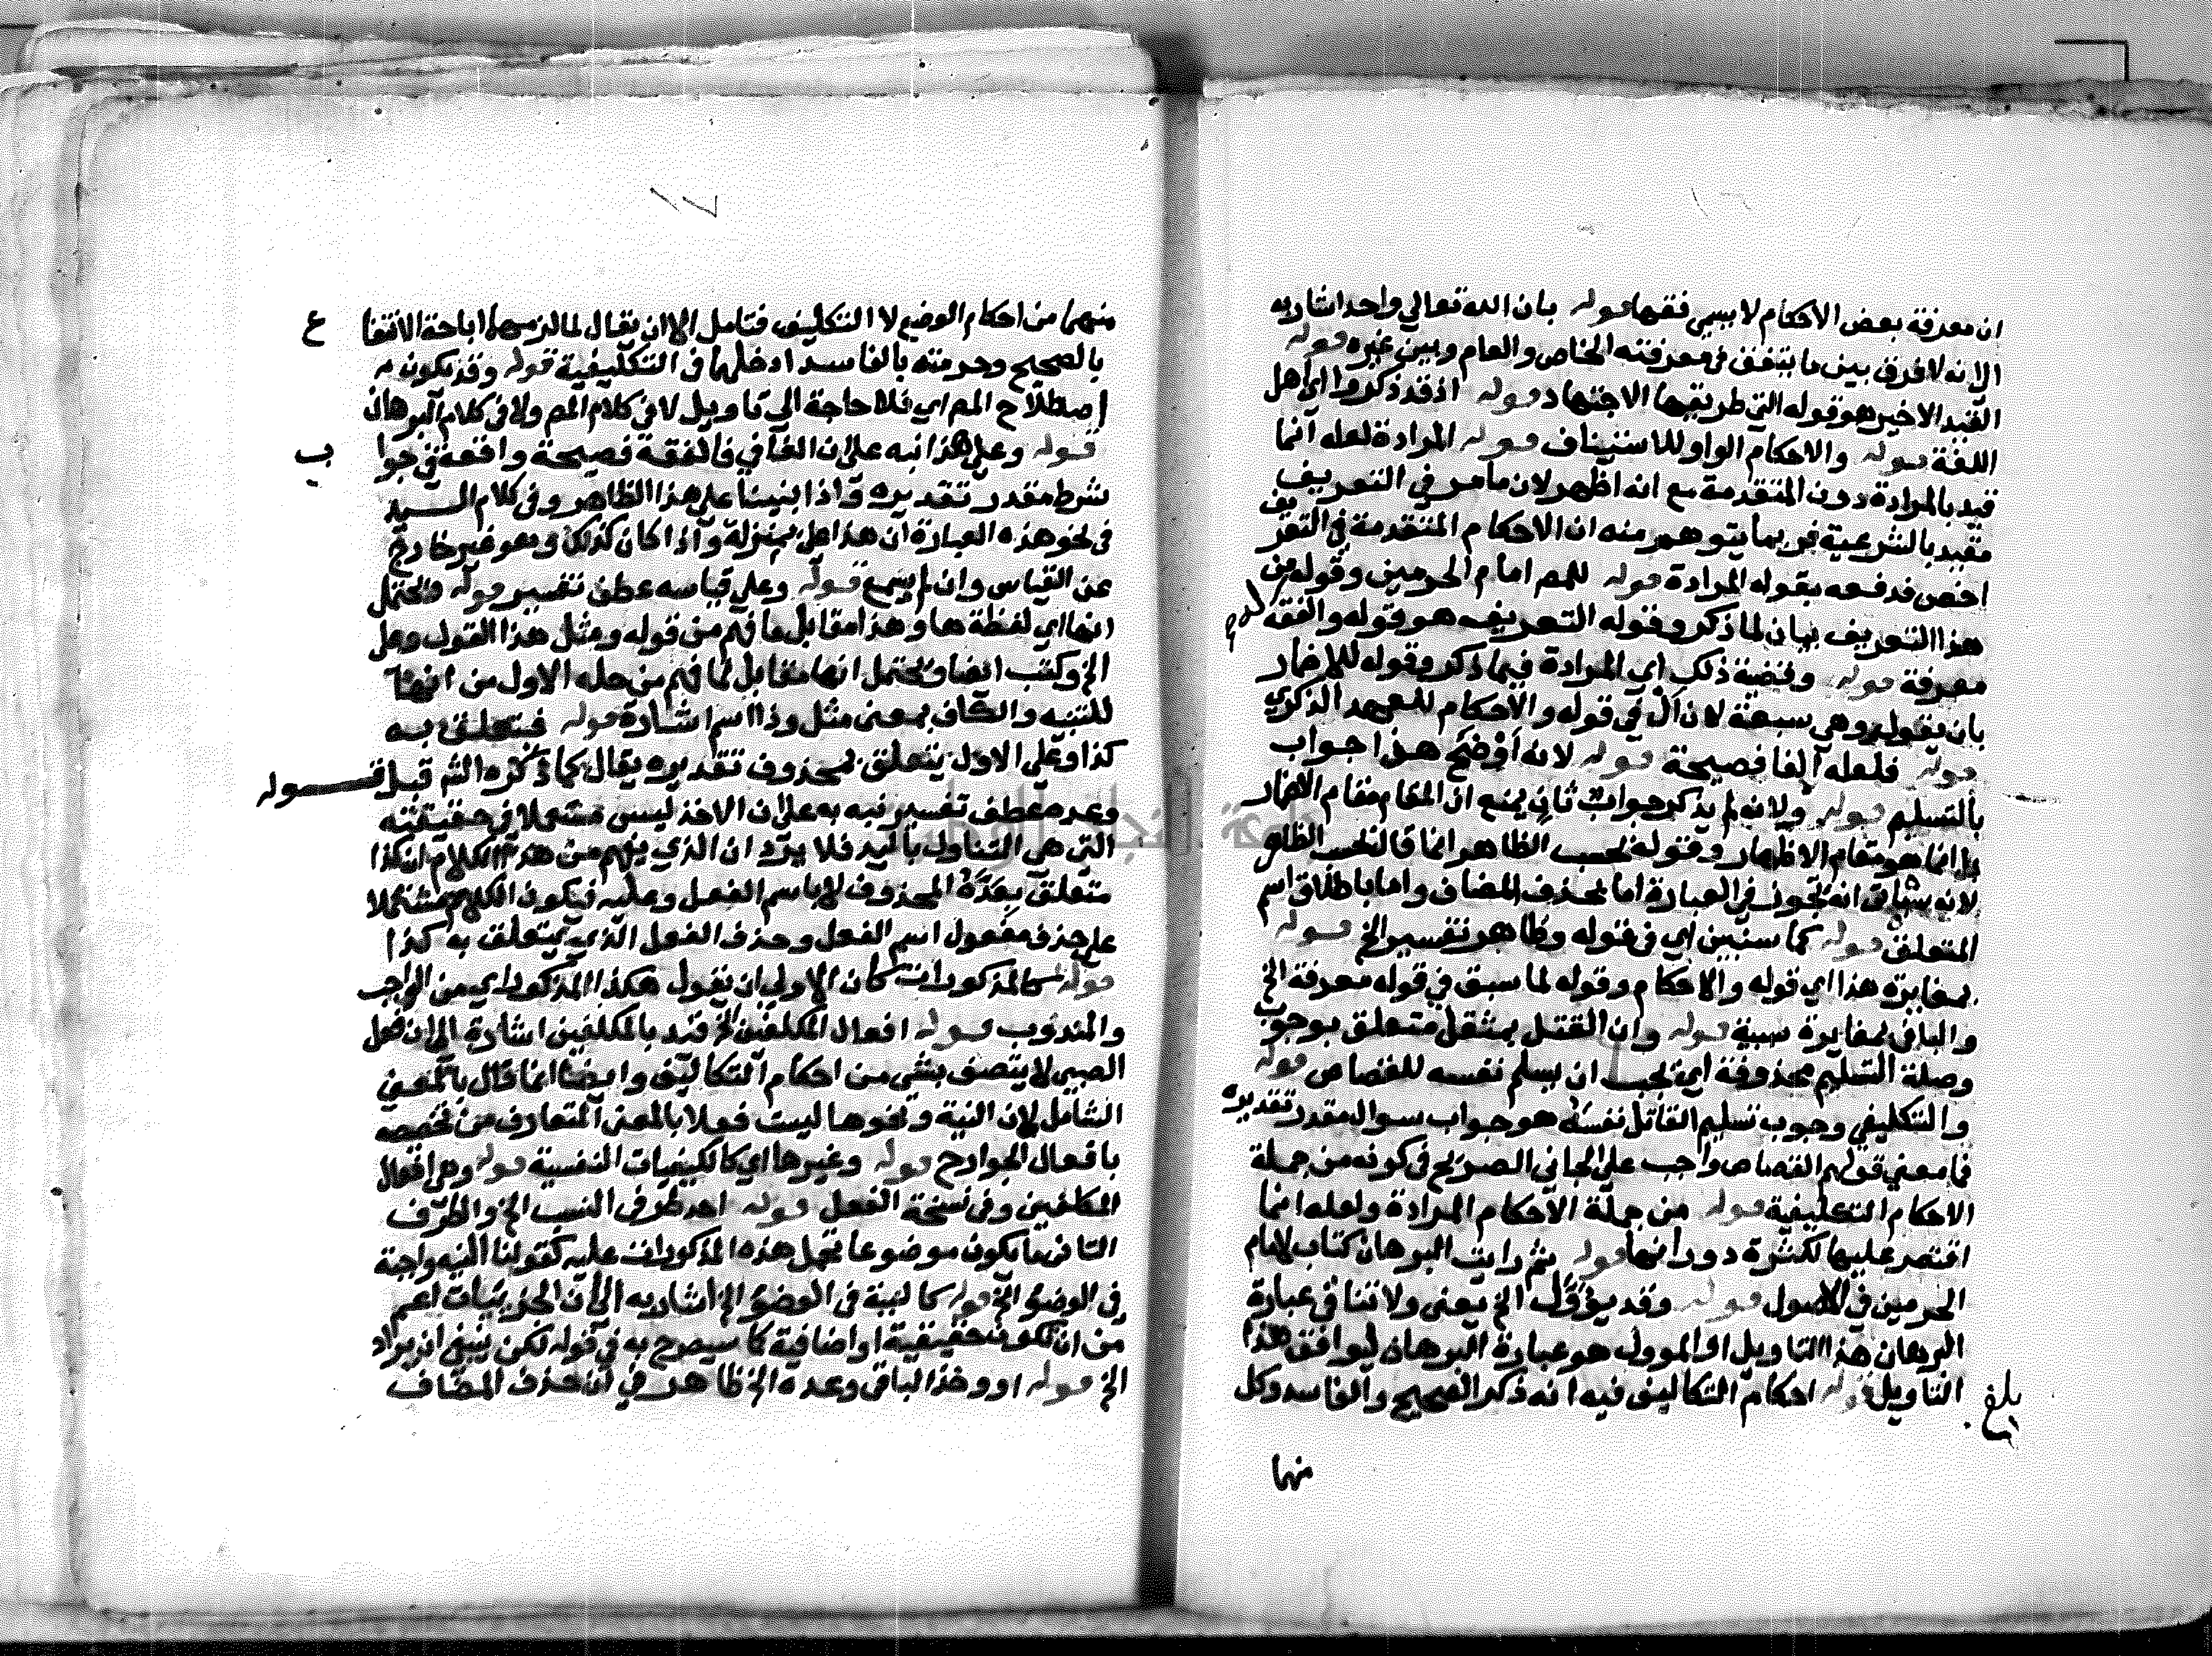 ان معرفة بعض الاحكام لا يسمى فقها قوله بان الله تعالي واحد اشار به
الا انه لا فرق بين ما يتفق في معرفته الخاص والعام وبين غيره قوله
القيد الاخير هو قوله التي طريقها الاجتهاد قوله اذ قد ذكروا اي اهل
اللغة قوله والاحكام الواو للاستيناف قوله المرادة لعله انما
قيد بالمرادة دون المتقدمة مع انه اظهر لان ما مر في التعريف
مقيد بالشرعية فربما يتوهم منه ان الاحكام المتقدمة في التعر يف
اخص فدفعه بقوله المرادة قوله للمص امام الحرمين وقوله من
هذا التعريف بيان لما ذكر وقوله التعريف هو قوله والفقه
معرفة قوله وقضية ذلك اي المرادة فيما ذكر وقوله للاضمار
بان يقول وهي سبعة لان ال في قوله والاحكام للعهد الذكري
قوله فلعله الفا فصيحة قوله لانه اوضح هذا جواب
بالتسليم قوله ولانه لم يذكر جواب ثان يمنع ان المقام مقام الاضمار
بل انما هو مقام الاظهار وقوله بحسب الظاهر انما قال بحسب الظاهر
لانه انه تجوز في العبارة اما بحذف المضاف واما باطلاق اسم
المتعلق قوله كما سنبين اي في قوله وظاهر تفسير الخ قوله
بمغايرة هذا اي قوله والاحكام وقوله لما سبق في قوله معرفة الخ
والباقي بمغايرة سببية قوله وان القتل بمثقل متعلق بوجوب
وصلة التسليم محذوفة اي يجب ان يسلم نفسه للقصاص قوله
والتكليفي وجوب تسليم القاتل نفسه هو جواب سوال مقدر تقديره
فما معني قولهم القصاص واجب على الجاني الصريح في كونه من جملة
الاحكام التكليفية قوله من جملة الاحكام المرادة ولعله انما
اقتصر عليها لكثرة دورانها قوله ثم رايت البرهان كتاب لامام
الحرمين في الاصول قوله وقد يؤول الخ يعني ولا تنافي عبارة
البرهان هذا التاويل او الموول هو عبارة البرهان ليوافق هذا
التاويل قوله احكام التكاليف فيه انه ذكر الصحيح والفاسد وكل
بلغ
منهما
١٧
منهما من احكام الوضع لا التكليف فتامل الا ان يقال لما لزمهما اباحة الانتفا ع
بالصحيح وحرمته بالفاسد ادخلهما في التكليفية قوله وقد يكون
اصطلاح المص اي فلا حاجة الى تاويل لا في كلام المص ولا في كلام البرهان
قوله وعلى هذا نبه على ان الفا في فالفقه فصيحة واقعة في جوا ب
شرط مقدر تقديره واذا بنينا على هذا الظاهر وفي كلام السيد
في نحو هذه العبارة ان هذا على بمنزلة واذا كان كذلك وهو غير خارج
عن القياس وان لم يسمع قوله وعلى قياسه عطف تفسير قوله ويحتمل
انها اي لفظة ها وهذا مقابل ما فهم من قوله ومثل هذا القول وعلى
الخ وكتب ايضا ويحتمل انها مقابل لما فهم من حله الاول من انها
للتنبه والكاف بمعنى مثل وذا اسم اشارة قوله فتعلق به
كذا وعلى الاول يتعلق بمحذوف تقديره يقال كما ذكره الش قبل قوله
وعده عطف تفسير نبه به على ان الاخذ ليس مستعملا في حقيقته
التي هي التناول باليد فلا يرد ان الذي يفهم من هذا الكلام ان كذا
متعلق بعده المحذوف لا باسم الفعل وعليه فيكون الكلام مشتملا
على حذف مفعول اسم الفعل وحذف الفعل الذي يتعلق به كذا
قوله كالمذكورات كان الاولى ان يقول هكذا المذكور اي من الواجب
والمندوب قوله افعال المكلفين الخ قيد بالمكلفين اشارة الى ان فعل
الصبي لا يتصف بشي من احكام التكاليف وايضا انما قال بالمعنى
الشامل لان النية ونحوها ليست فعلا بالمعنى المتعارف من تخصصه
بافعال الجوارح قوله وغيرها اي كالكيفيات النفسية قوله وهي افعال
المكلفين وفي نسخة الفعل قوله احد طرفي النسب الخ والطرف
الثاني ما يكون موضوعا تحمل هذه المذكورات عليه كقولنا النية واجبة
في الوضؤ الخ قوله كالنية في الوضؤ الخ اشار به الى ان الجزييات اعم
من ان تكون حقيقية او اضافية كما سيصرح به في قوله لكن ينبغي ان يراد
الخ قوله او وخذ الباقي وعده الخ ظاهر في ان حذف المضاف